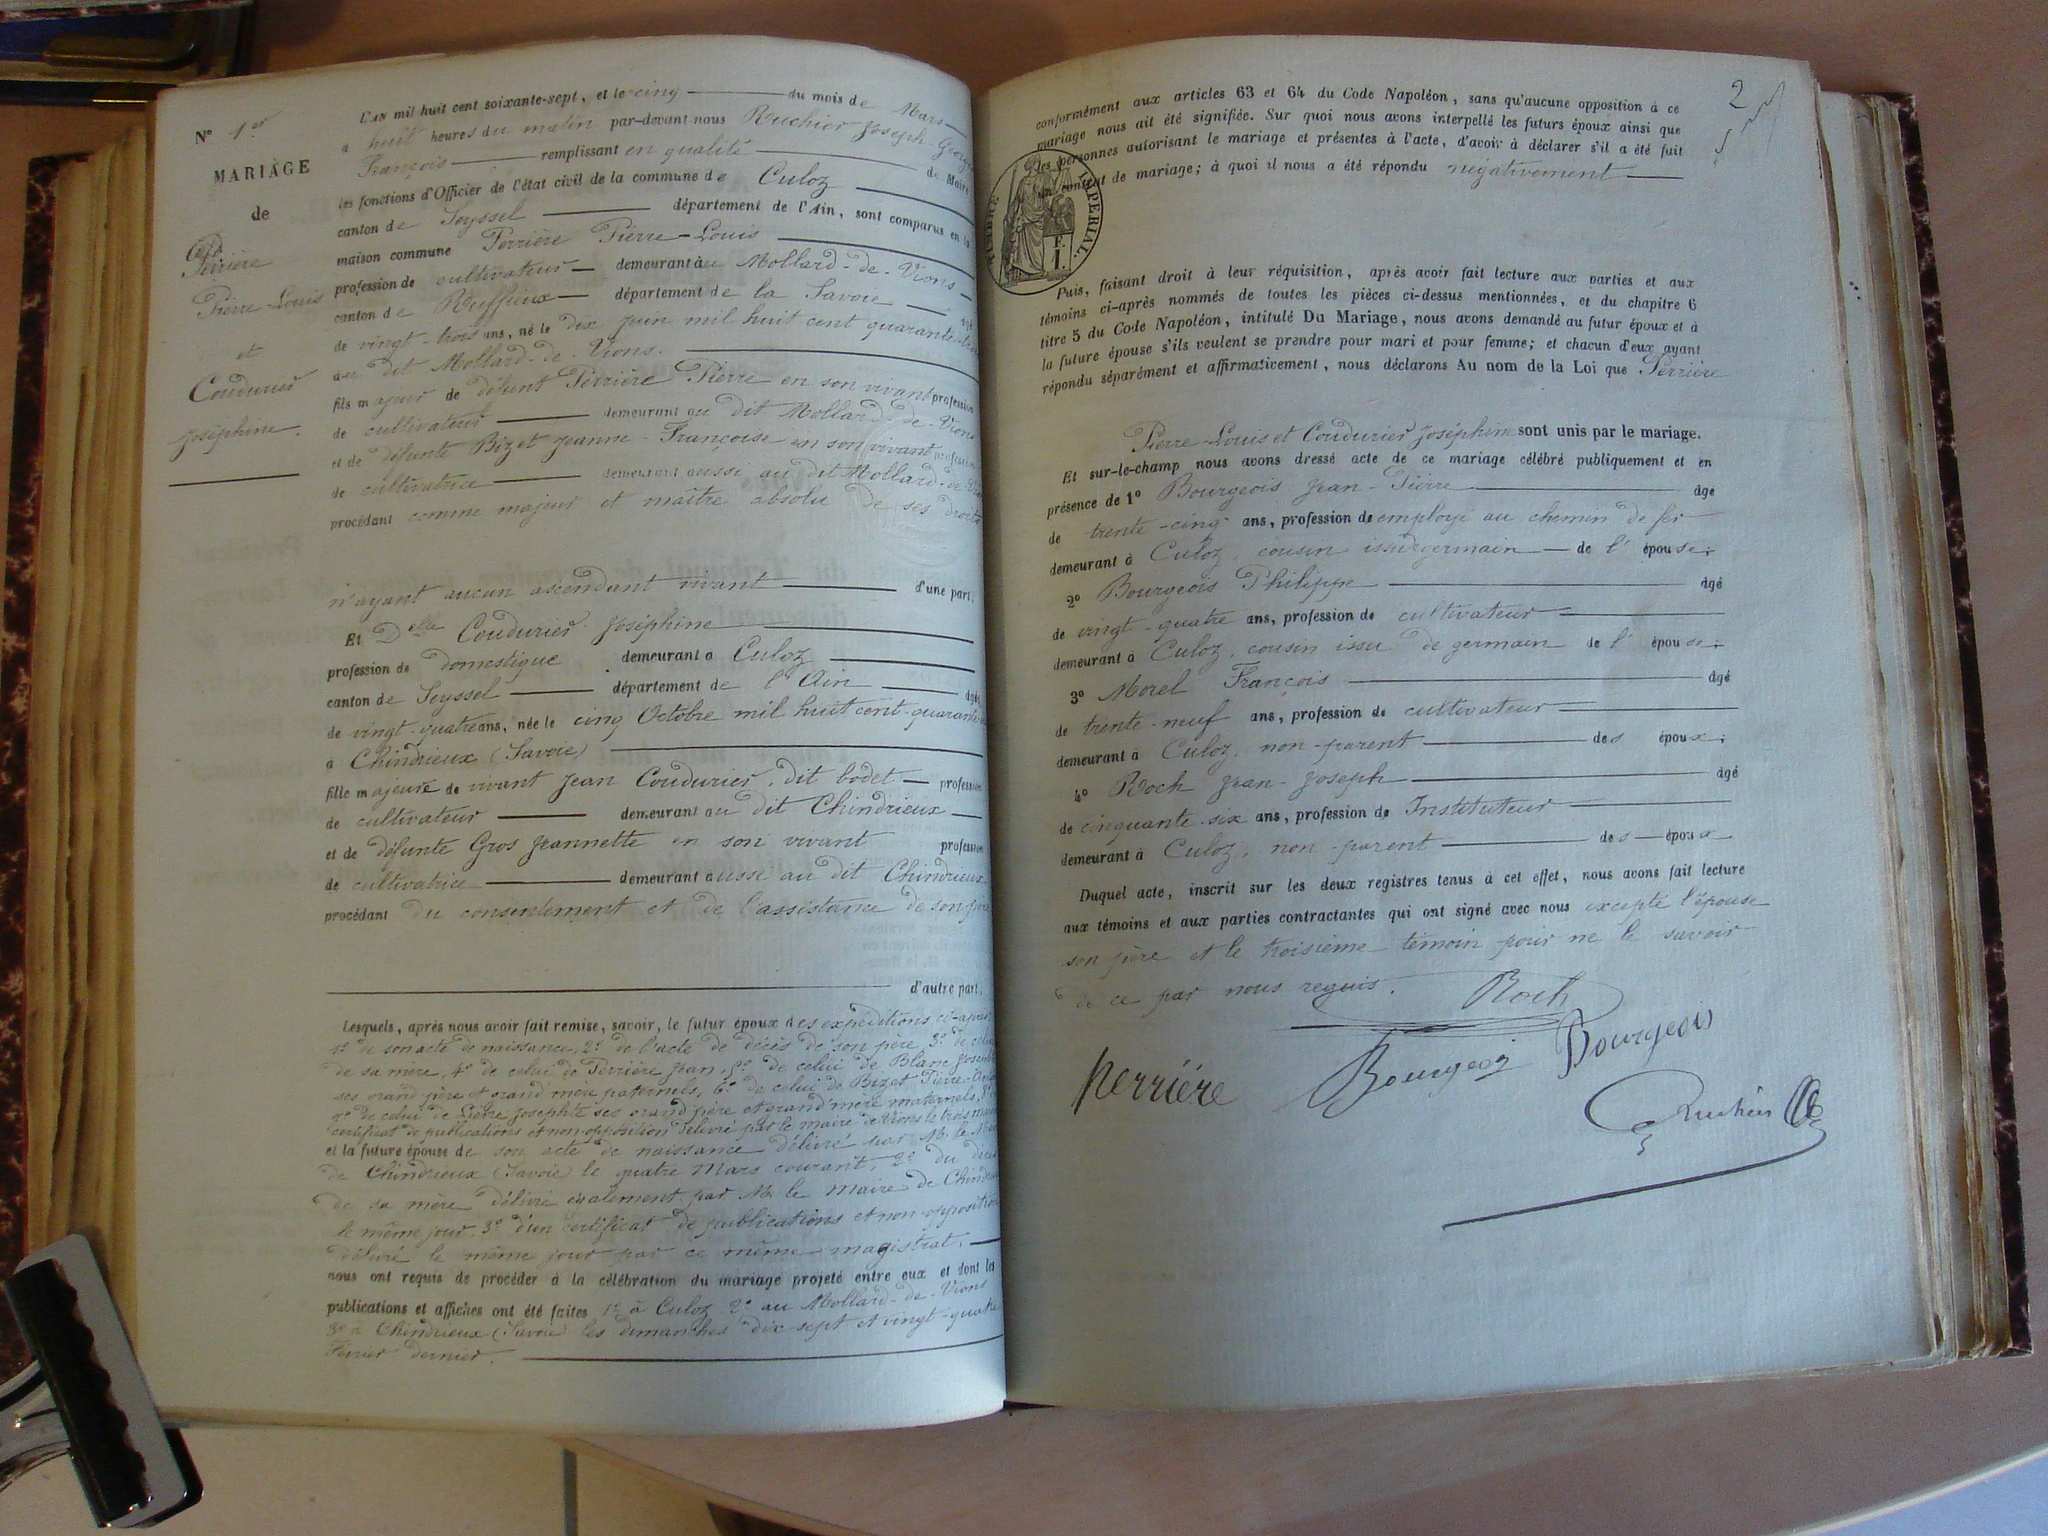 N° 1er
MARIAGE
de
Perrière
Pierre-Louis
et
Coudurier
Joséphine.
L'AN mil huit cent soixante-sept, et le cinq du mois de Mars
à huit heures du matin par-devant nous Ruchier Joseph-
François remplissant en qualité de Maire
les fonctions d'Officier de l'état civil de la commune de Culoz
canton de Seyssel département de l'Ain, sont comparus en la
maison commune Perrière Pierre-Louis
profession de cultivateur demeurant au Mollard-de-Vions
canton de Ruffieux département de la Savoie âgé
de vingt-trois ans, né le dix juin mil huit cent quarante-
au dit Mollard-de-Vions.
fils majeur de défunt Perrière Pierre en son vivant profession
de cultivateur demeurant au dit Mollard-de-Vions
et de défunte Bizet Jeanne-Françoise en son vivant profession
de cultivatrice demeurant aussi au dit Mollard-de-
procédant comme majeur et maître absolu de ses droits
n'ayant aucun ascendant vivant d'une part.
Et Delle Coudurier Joséphine
profession de domestique demeurant à Culoz
canton de Seyssel département de l'Ain âgée
de vingt-quatre ans, née le cinq Octobre mil huit cent-quarante-
à Chindrieux (Savoie)
fille majeure de vivant Jean Coudurier, dit bodet profession
de cultivateur demeurant au dit Chindrieux
et de défunte Gros Jeannette en son vivant profession
de cultivatrice demeurant aussi au dit Chindrieux
procédant du consentement et de l'assistance de son père
d'autre part.
Lesquels, après nous avoir fait remise, savoir, le futur époux des expéditions ci-après
1° de son acte de naissance, 2° de l'acte de décès de son père 3° de celui
de sa mère, 4° de celui de Perrière Jean, 5° de celui de Blanc
ses grand père et grand'mère paternels, 6° de celui de Bizet Pierre-
7° de celui de Josephte ses grand père et grand'mère maternels, 8°
certificat de publications et non opposition délivré par le maire de Vions le trois mars
et la future épouse de son acte de naissance délivré par M. le Maire
de Chindrieux (Savoie) le quatre Mars courant, 2° du décès
de sa mère délivré également par M. le Maire de Chindrieux
le même jour 3° d'un certificat de publications et non opposition
délivré le même jour par ce même magistrat.
nous ont requis de procéder à la célébration du mariage projeté entre eux et dont les
publications et affiches ont été faites 1° à Culoz 2° au Mollard-de-Vions
3° à Chindrieux (Savoie) les dimanches dix-sept et vingt-quatre
Février dernier.
2
conformément aux articles 63 et 64 du Code Napoléon, sans qu'aucune opposition à ce
mariage nous ait été signifiée. Sur quoi nous avons interpellé les futurs époux ainsi que
les personnes autorisant le mariage et présentes à l'acte, d'avoir à déclarer s'il a été fait
un contrat de mariage; à quoi il nous a été répondu négativement
TIMBRE IMPERIAL
F.
1.
Puis, faisant droit à leur réquisition, après avoir fait lecture aux parties et aux
témoins ci-après nommés de toutes les pièces ci-dessus mentionnées, et du chapitre 6
titre 5 du Code Napoléon, intitulé Du Mariage, nous avons demandé au futur époux et à
la future épouse s'ils veulent se prendre pour mari et pour femme; et chacun d'eux ayant
répondu séparément et affirmativement, nous déclarons Au nom de la Loi que Perrière
Pierre-Louis et Coudurier Joséphine sont unis par le mariage.
Et sur-le-champ nous avons dressé acte de ce mariage célébré publiquement et en
présence de 1° Bourgeois Jean-Pierre âgé
de trente-cinq ans, profession de employé au chemin de fer
demeurant à Culoz, cousin issu germain de l'épouse;
2° Bourgeois Philippe âgé
de vingt-quatre ans, profession de cultivateur
demeurant à Culoz, cousin issu de germain de l'épouse;
3° Morel François âgé
de trente-neuf ans, profession de cultivateur
demeurant à Culoz, non-parent des époux;
4° Roch Jean-Joseph âgé
de cinquante-six ans, profession de Instituteur
demeurant à Culoz, non-parent des époux
Duquel acte, inscrit sur les deux registres tenus à cet effet, nous avons fait lecture
aux témoins et aux parties contractantes qui ont signé avec nous excepté l'épouse
son père et le troisième témoin pour ne le savoir
de ce par nous requis.
Roch
perriére Bourgeoi Bourgeois
Ruchier